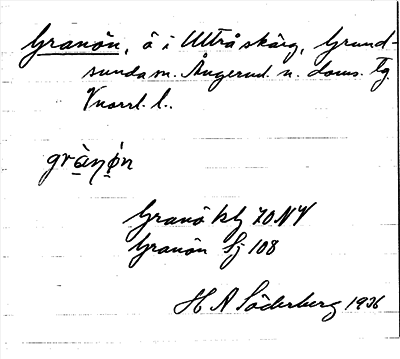 Granön, ö i Ultrå skärg, Grund-
sunda sn. Ångerml. n. doms. tg.
Vnorrl. l.
Granö kbl 70 NV
Granön Sj 108
H A Söderberg 1936